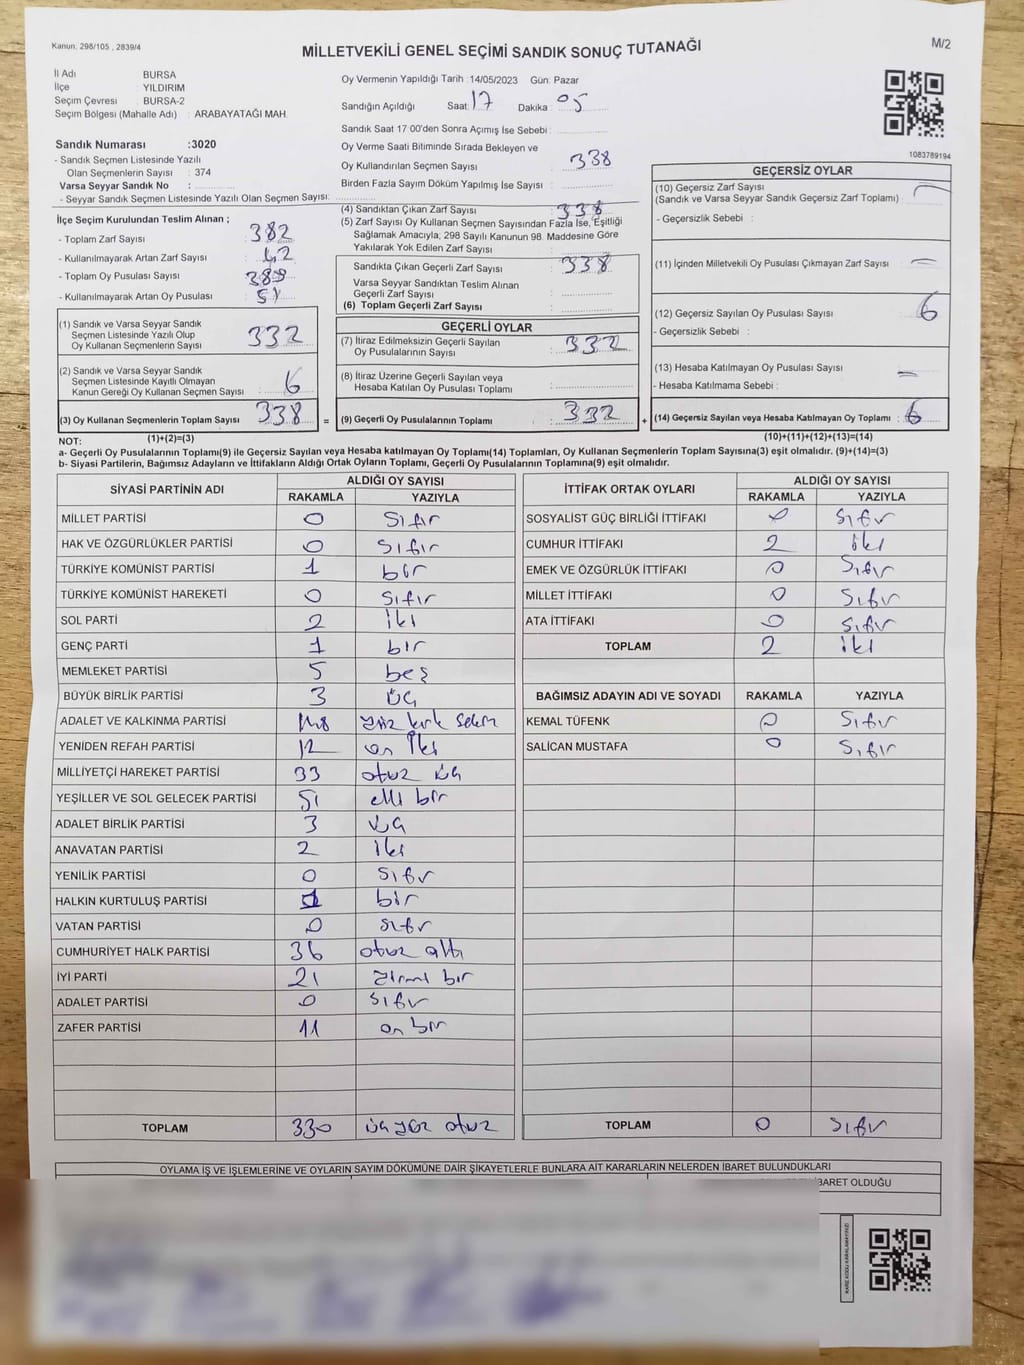 Kanun: 298/105 , 2839/4
MİLLETVEKİLİ GENEL SEÇİMİ SANDIK SONUÇ TUTANAĞI
M/2
İl Adı BURSA
İlçe YILDIRIM
Seçim Çevresi : BURSA-2
Seçim Bölgesi (Mahalle Adı) : ARABAYATAĞI MAH.
Oy Vermenin Yapıldığı Tarih :14/05/2023 Gün: Pazar
Sandığın Açıldığı Saat: 17 Dakika: 05
Sandık Saat 17 00'den Sonra Açımış İse Sebebi :
Oy Verme Saati Bitiminde Sırada Bekleyen ve
Oy Kullandırılan Seçmen Sayısı : 338
Birden Fazla Sayım Döküm Yapılmış İse Sayısı :
1083789194
Sandık Numarası :3020
- Sandık Seçmen Listesinde Yazılı
Olan Seçmenlerin Sayısı : 374
Varsa Seyyar Sandık No :
- Seyyar Sandık Seçmen Listesinde Yazılı Olan Seçmen Sayısı:
İlçe Seçim Kurulundan Teslim Alınan ;
- Toplam Zarf Sayısı 382
- Kullanılmayarak Artan Zarf Sayısı 42
- Toplam Oy Pusulası Sayısı 389
- Kullanılmayarak Artan Oy Pusulası 51
(1) Sandık ve Varsa Seyyar Sandık
Seçmen Listesinde Yazılı Olup
Oy Kullanan Seçmenlerin Sayısı 332
(2) Sandık ve Varsa Seyyar Sandık
Seçmen Listesinde Kayıtlı Olmayan
Kanun Gereği Oy Kullanan Seçmen Sayısı 6
(3) Oy Kullanan Seçmenlerin Toplam Sayısı 338 =
(4) Sandıktan Çıkan Zarf Sayısı : 338
(5) Zarf Sayısı Oy Kullanan Seçmen Sayısından Fazla İse, Eşitliği
Sağlamak Amacıyla, 298 Sayılı Kanunun 98. Maddesine Göre
Yakılarak Yok Edilen Zarf Sayısı :
Sandıkta Çıkan Geçerli Zarf Sayısı : 338
Varsa Seyyar Sandıktan Teslim Alınan
Geçerli Zarf Sayısı :
(6) Toplam Geçerli Zarf Sayısı :
GEÇERLİ OYLAR
(7) İtiraz Edilmeksizin Geçerli Sayılan
Oy Pusulalarının Sayısı : 332
(8) İtiraz Üzerine Geçerli Sayılan veya
Hesaba Katılan Oy Pusulası Toplamı :
(9) Geçerli Oy Pusulalarının Toplamı : 332 +
GEÇERSİZ OYLAR
(10) Geçersiz Zarf Sayısı
(Sandık ve Varsa Seyyar Sandık Geçersiz Zarf Toplamı) :
- Geçersizlik Sebebi :
(11) İçinden Milletvekili Oy Pusulası Çıkmayan Zarf Sayısı : —
(12) Geçersiz Sayılan Oy Pusulası Sayısı : 6
- Geçersizlik Sebebi :
(13) Hesaba Katılmayan Oy Pusulası Sayısı : —
- Hesaba Katılmama Sebebi :
(14) Geçersiz Sayılan veya Hesaba Katılmayan Oy Toplamı : 6
NOT: (1)+(2)=(3) (10)+(11)+(12)+(13)=(14)
a- Geçerli Oy Pusulalarının Toplamı(9) ile Geçersiz Sayılan veya Hesaba katılmayan Oy Toplamı(14) Toplamları, Oy Kullanan Seçmenlerin Toplam Sayısına(3) eşit olmalıdır. (9)+(14)=(3)
b- Siyasi Partilerin, Bağımsız Adayların ve İttifakların Aldığı Ortak Oyların Toplamı, Geçerli Oy Pusulalarının Toplamına(9) eşit olmalıdır.
SİYASİ PARTİNİN ADI ALDIĞI OY SAYISI
RAKAMLA YAZIYLA
MİLLET PARTİSİ 0 Sıfır
HAK VE ÖZGÜRLÜKLER PARTİSİ 0 sıfır
TÜRKİYE KOMÜNİST PARTİSİ 1 bir
TÜRKİYE KOMÜNİST HAREKETİ 0 sıfır
SOL PARTİ 2 iki
GENÇ PARTİ 1 bir
MEMLEKET PARTİSİ 5 beş
BÜYÜK BİRLİK PARTİSİ 3 üç
ADALET VE KALKINMA PARTİSİ 148 yüz kırk sekiz
YENİDEN REFAH PARTİSİ 12 on iki
MİLLİYETÇİ HAREKET PARTİSİ 33 otuz üç
YEŞİLLER VE SOL GELECEK PARTİSİ 51 elli bir
ADALET BİRLİK PARTİSİ 3 üç
ANAVATAN PARTİSİ 2 iki
YENİLİK PARTİSİ 0 sıfır
HALKIN KURTULUŞ PARTİSİ 1 bir
VATAN PARTİSİ 0 sıfır
CUMHURİYET HALK PARTİSİ 36 otuz altı
İYİ PARTİ 21 yirmi bir
ADALET PARTİSİ 0 sıfır
ZAFER PARTİSİ 11 on bir
TOPLAM 330 üç yüz otuz
İTTİFAK ORTAK OYLARI ALDIĞI OY SAYISI
RAKAMLA YAZIYLA
SOSYALİST GÜÇ BİRLİĞİ İTTİFAKI 0 sıfır
CUMHUR İTTİFAKI 2 iki
EMEK VE ÖZGÜRLÜK İTTİFAKI 0 Sıfır
MİLLET İTTİFAKI 0 Sıfır
ATA İTTİFAKI 0 sıfır
TOPLAM 2 iki
BAĞIMSIZ ADAYIN ADI VE SOYADI RAKAMLA YAZIYLA
KEMAL TÜFENK 0 Sıfır
SALİCAN MUSTAFA 0 Sıfır
TOPLAM 0 Sıfır
OYLAMA İŞ VE İŞLEMLERİNE VE OYLARIN SAYIM DÖKÜMÜNE DAİR ŞİKAYETLERLE BUNLARA AİT KARARLARIN NELERDEN İBARET BULUNDUKLARI
İBARET OLDUĞU
KARE KODU KARALAMAYINIZ!